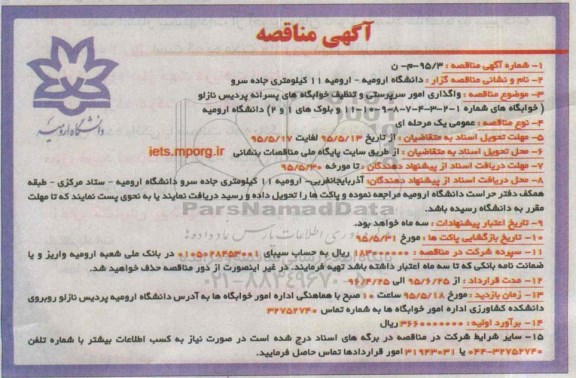 آگهی مناقصه
دانشگاه ارومیه
۱- شماره آگهی مناقصه : ۹۵/۳-م- ن
۲- نام و نشانی مناقصه گزار : دانشگاه ارومیه - ارومیه ۱۱ کیلومتری جاده سرو
۳- موضوع مناقصه : واگذاری امور سرپرستی و تنظیف خوابگاه های پسرانه پردیس نازلو
( خوابگاه های شماره ۱-۲-۳-۴-۷-۸-۹-۱۰-۱۱ و بلوک های ۱ و ۲) دانشگاه ارومیه
۴- نوع مناقصه : عمومی یک مرحله ای
۵- مهلت تحویل اسناد به متقاضیان : از تاریخ ۹۵/۵/۱۳ لغایت ۹۵/۵/۱۷
۶- محل تحویل اسناد به متقاضیان : از طریق سایت پایگاه ملی مناقصات بنشانی iets.mporg.ir
۷- مهلت دریافت اسناد از پیشنهاد دهندگان : تا مورخه ۹۵/۵/۳۰
۸- محل دریافت اسناد از پیشنهاد دهندگان: آذربایجانغربی- ارومیه ۱۱ کیلومتری جاده سرو دانشگاه ارومیه - ستاد مرکزی - طبقه
همکف دفتر حراست دانشگاه ارومیه مراجعه نموده و پاکت ها را تحویل داده و رسید دریافت نمایند یا به نحوی پست نمایند که تا مهلت
مقرر به دانشگاه رسیده باشد.
ParsNamadData
۹- تاریخ اعتبار پیشنهادات : سه ماه خواهد بود.
۱۰- تاریخ بازگشایی پاکت ها : مورخ ۹۵/۵/۳۱
۱۱- سپرده شرکت در مناقصه : ۱۸۳۰۰۰۰۰۰ ریال به حساب سیبای ۰۱۰۵۰۲۸۴۵۴۰۰۱ در بانک ملی شعبه ارومیه واریز و یا
ضمانت نامه بانکی که تا سه ماه اعتبار داشته باشد تهیه فرمایند. در غیر اینصورت از دور مناقصه حذف خواهید شد.
۱۲- مدت قرارداد : از ۹۵/۶/۲۵ الی ۹۶/۴/۲۵
۰۲۱-۸۸۳۴۹۶۷۰
۱۳- زمان بازدید : مورخ ۹۵/۵/۱۸ ساعت ۱۰ صبح با هماهنگی اداره امور خوابگاه ها به آدرس دانشگاه ارومیه پردیس نازلو روبروی
دانشکده کشاورزی اداره امور خوابگاه ها به شماره تماس ۳۲۷۵۲۷۴۰
۱۴- برآورد اولیه : ۳۶۶۰۰۰۰۰۰۰ ریال
۱۵- سایر شرایط شرکت در مناقصه در برگه های اسناد درج شده است در صورت نیاز به کسب اطلاعات بیشتر با شماره تلفن
۰۴۴-۳۲۷۵۲۷۴۰ یا ۳۱۹۴۳۰۳۱ امور قراردادها تماس حاصل فرمایید.